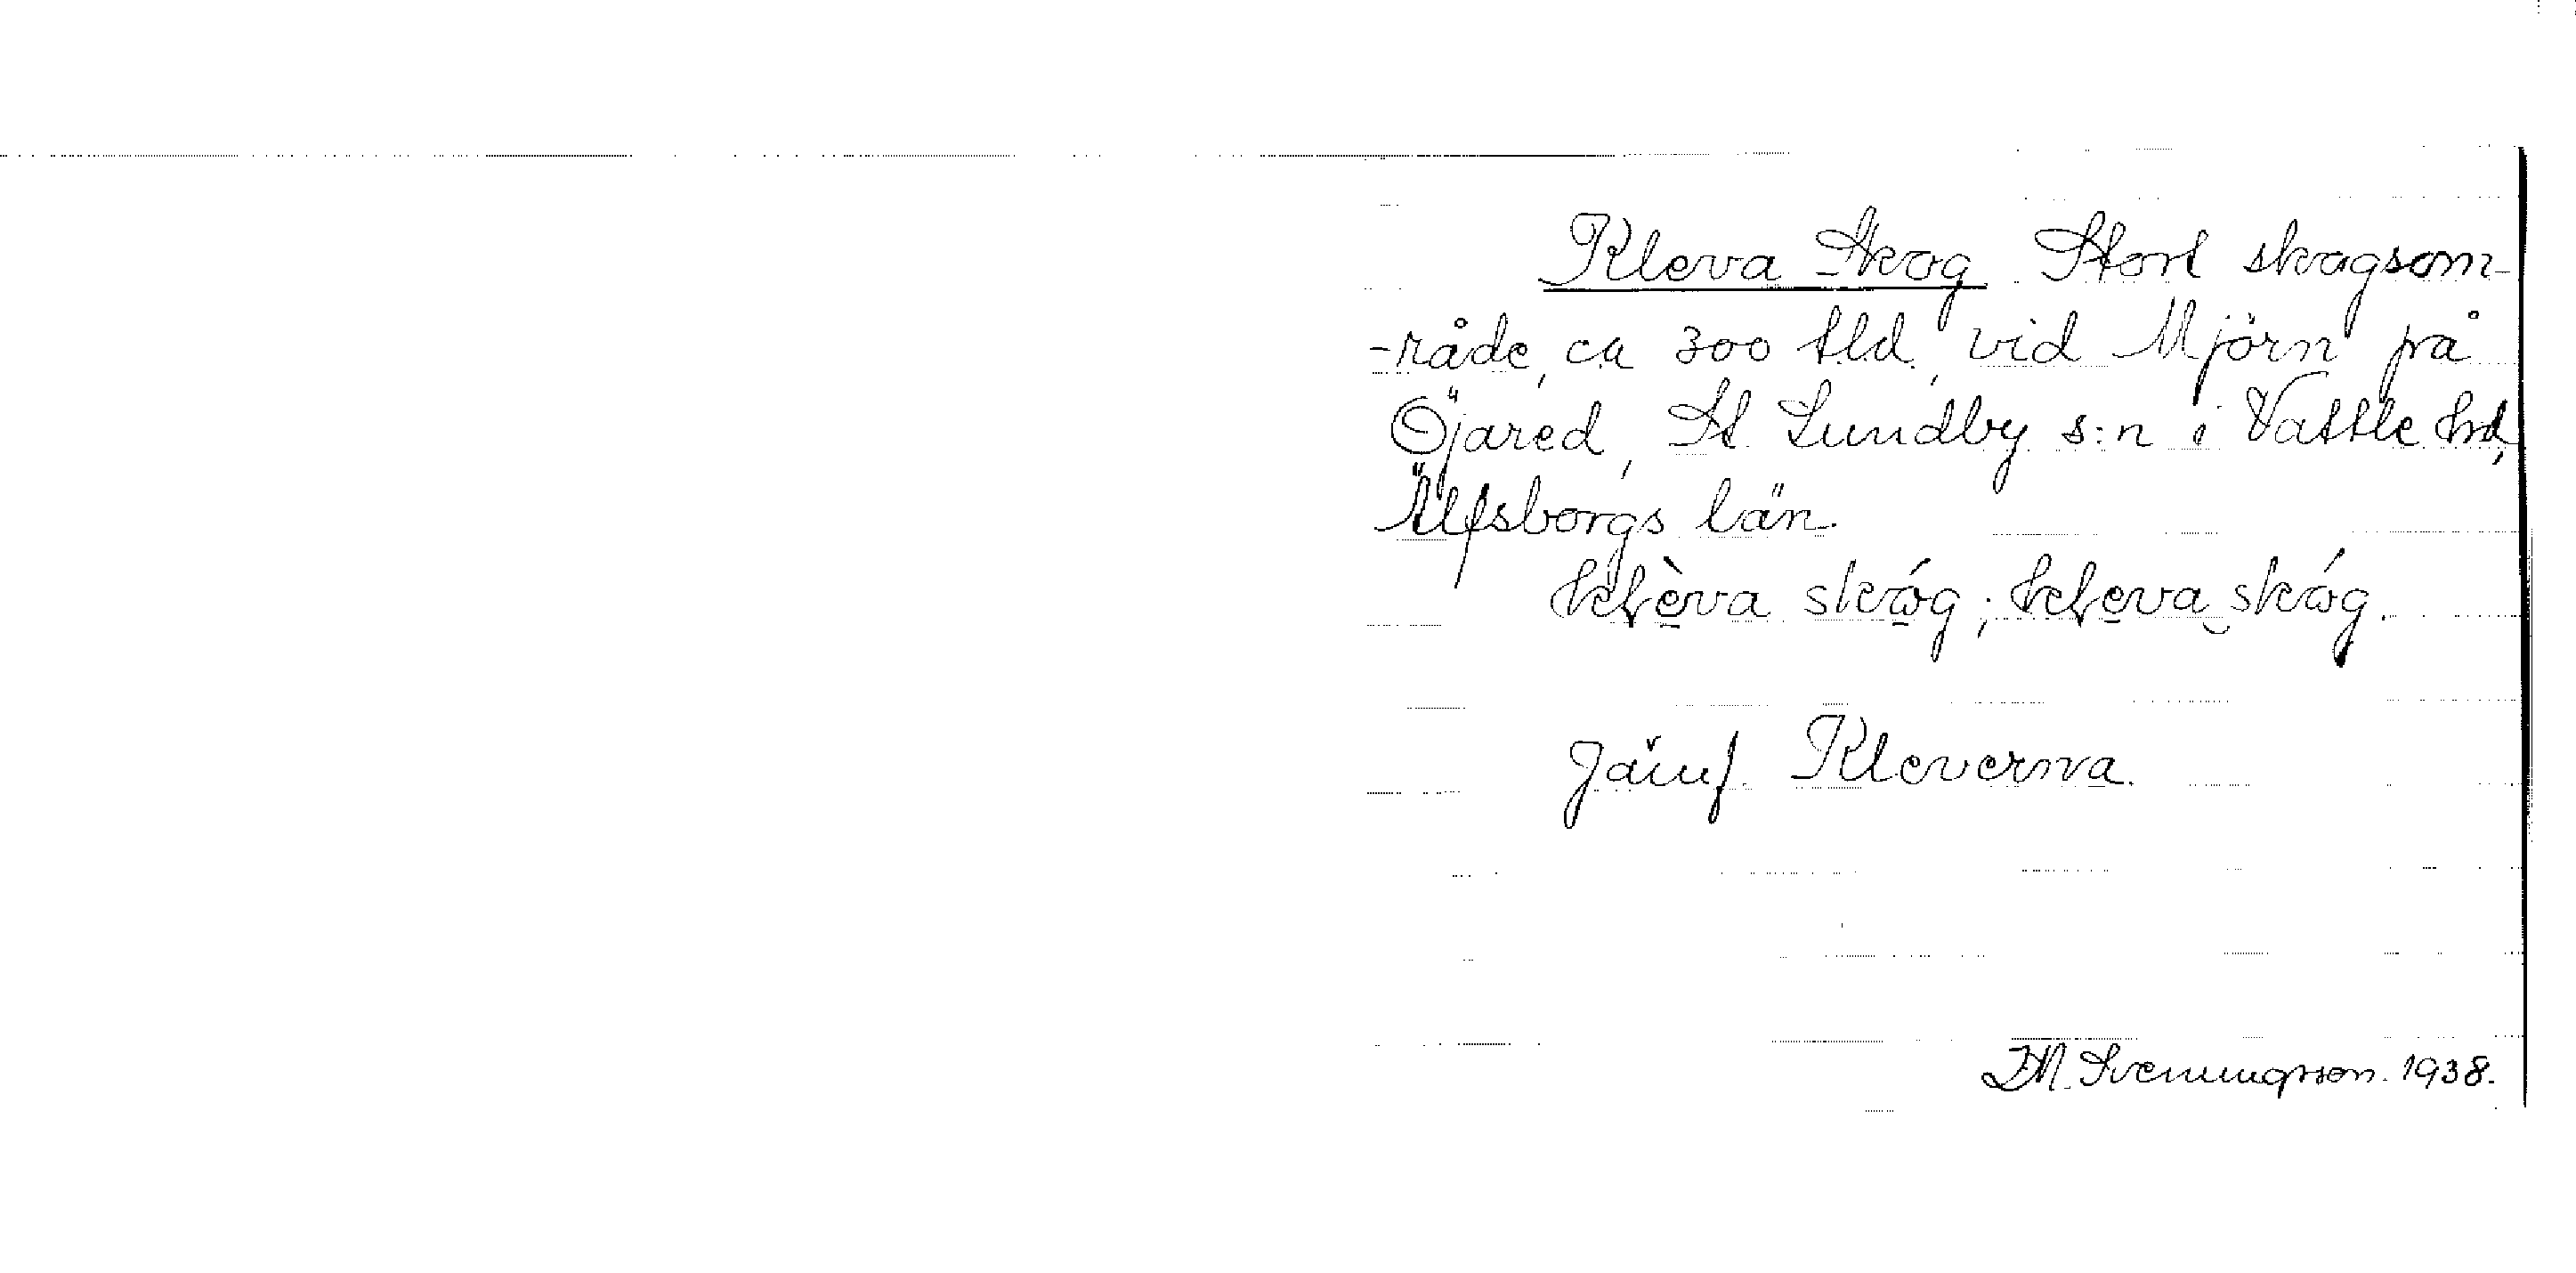 Kleva Skog Stort skogsom-
-råde, ca 300 tld., vid Mjörn på
Öjared, St. Lundby s:n i Vättle hd,
Älfsborgs län.
klèva skóg; kleva skóg.
Jämf. Kleverna.
D.M. Svenningsson. 1938.